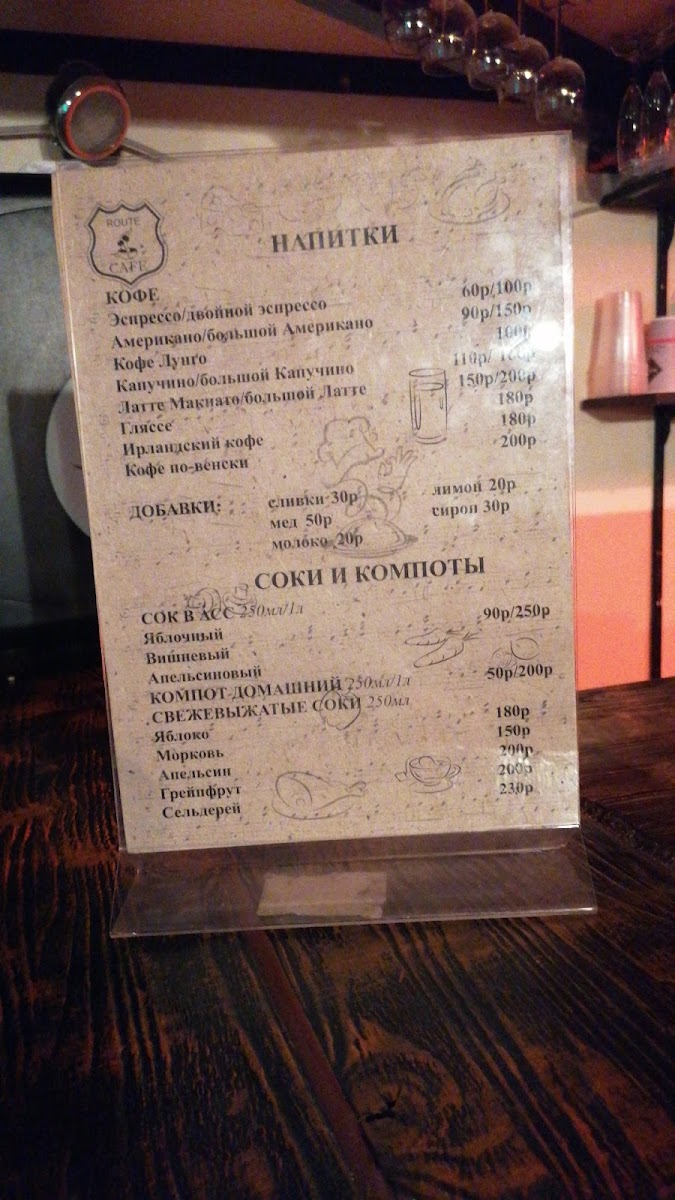 ROUTE
CAFE
НАПИТКИ
КОФЕ
Эспрессо/двойной эспрессо 60р/100р
Американо/большой Американо 90р/150р
Кофе Лунго 100р
Капучино/большой Капучино 110р/
Латте Макиато/большой Латте 150р/200р
Гляссе 180р
Ирландский кофе 180р
Кофе по-венски 200р
ДОБАВКИ: сливки 30р лимон 20р
мед 50р сироп 30р
молоко 20р
СОКИ И КОМПОТЫ
СОК В АСС 250мл/1л 90р/250р
Яблочный
Вишневый
Апельсиновый
КОМПОТ ДОМАШНИЙ 250мл/1л 50р/200р
СВЕЖЕВЫЖАТЫЕ СОКИ 250мл
Яблоко 180р
Морковь 150р
Апельсин 200р
Грейпфрут 200р
Сельдерей 230р